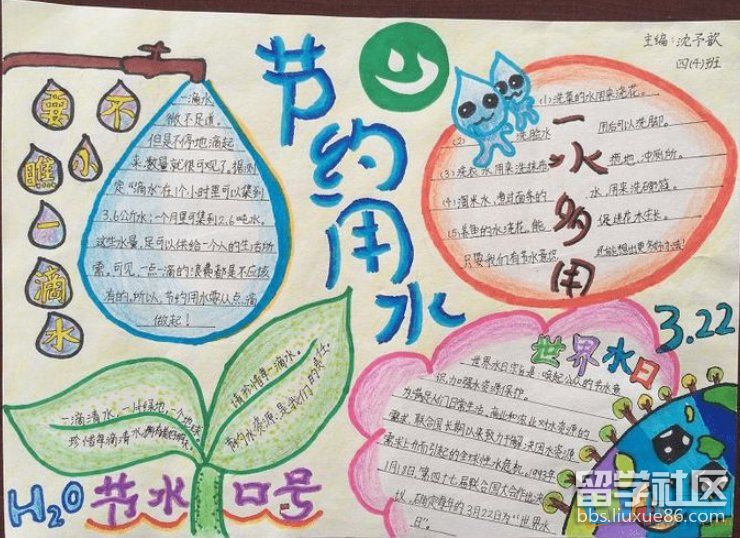 主编:沈予歆
四(4)班
节约用水
不要小瞧一滴水
一滴水
微不足道。
但是不停地滴起
来,数量就很可观了。据测
定“滴水”在1个小时里可以集到
3.6公斤水;一个月里可集到2.6吨水。
这些水量,足可以供给一个人的生活所
需。可见,一点一滴的浪费都是不应该
有的。所以,节约用水要从点滴
做起!
一水多用
(1)洗菜的水用来浇花。
(2) 洗脸水 用后可以洗脚。
(3)洗衣水用来洗拖布 拖地,冲厕所。
(4)淘米水,煮过面条的 水,用来洗碗筷。
(5)养鱼的水浇花,能 促进花木生长。
只要我们有节水意识, 还能想出更多好办法!
世界水日
3.22
世界水日宗旨是:唤起公众的节水意
识,加强水资源保护。
为满足人们日常生活、商业和农业对水资源的
需求,联合国长期以来致力于解决因水资源
需求上升而引起的全球性水危机。1993年
1月18日,第四十七届联合国大会作出决
议,确定每年的3月22日为“世界水
日”。
一滴清水,一片绿地,一个地球。
珍惜每滴清水,
请珍惜每一滴水。
节约水资源,是我们的责任。
H2O 节水口号
留学社区
bbs.liuxue86.com